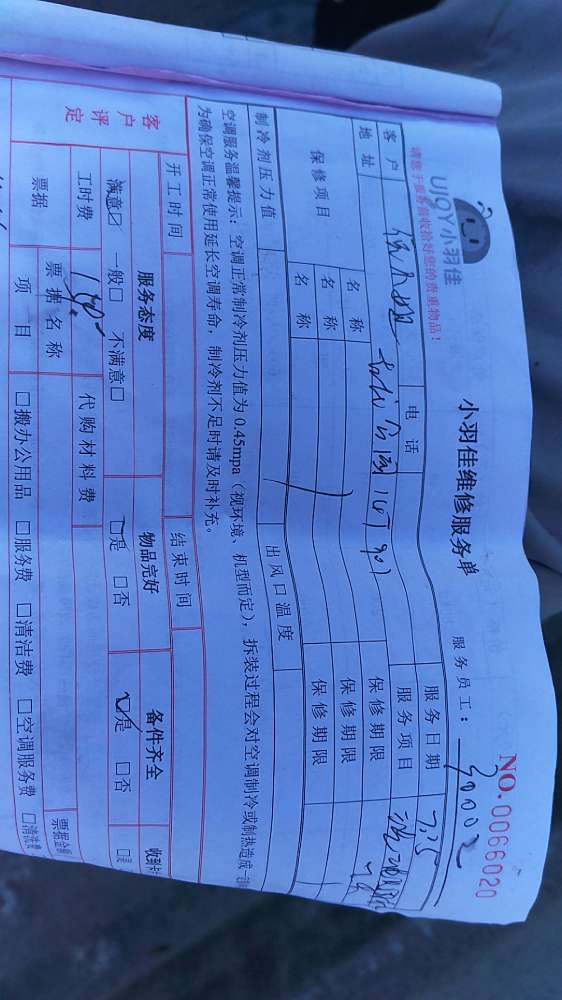 UIQY小羽佳
请您于服务前收拾好您的贵重物品！
小羽佳维修服务单
NO.0066020
服务员工：
客户
电话
服务日期 7.25
地址
服务项目
保修项目
名称
保修期限
名称
保修期限
名称
保修期限
制冷剂压力值
出风口温度
空调服务温馨提示：空调正常制冷剂压力值为0.45mpa（视环境、机型而定），拆装过程会对空调制冷或制热造成一
为确保空调正常使用延长空调寿命，制冷剂不足时请及时补充。
开工时间
结束时间
客户评定
服务态度
物品完好
备件齐全
满意☑ 一般□ 不满意□
☑是 □否
☑是 □否
工时费
180
代购材料费
票据
票据名称
票据金额
项目
□搬办公用品 □服务费 □清洁费 □空调服务费